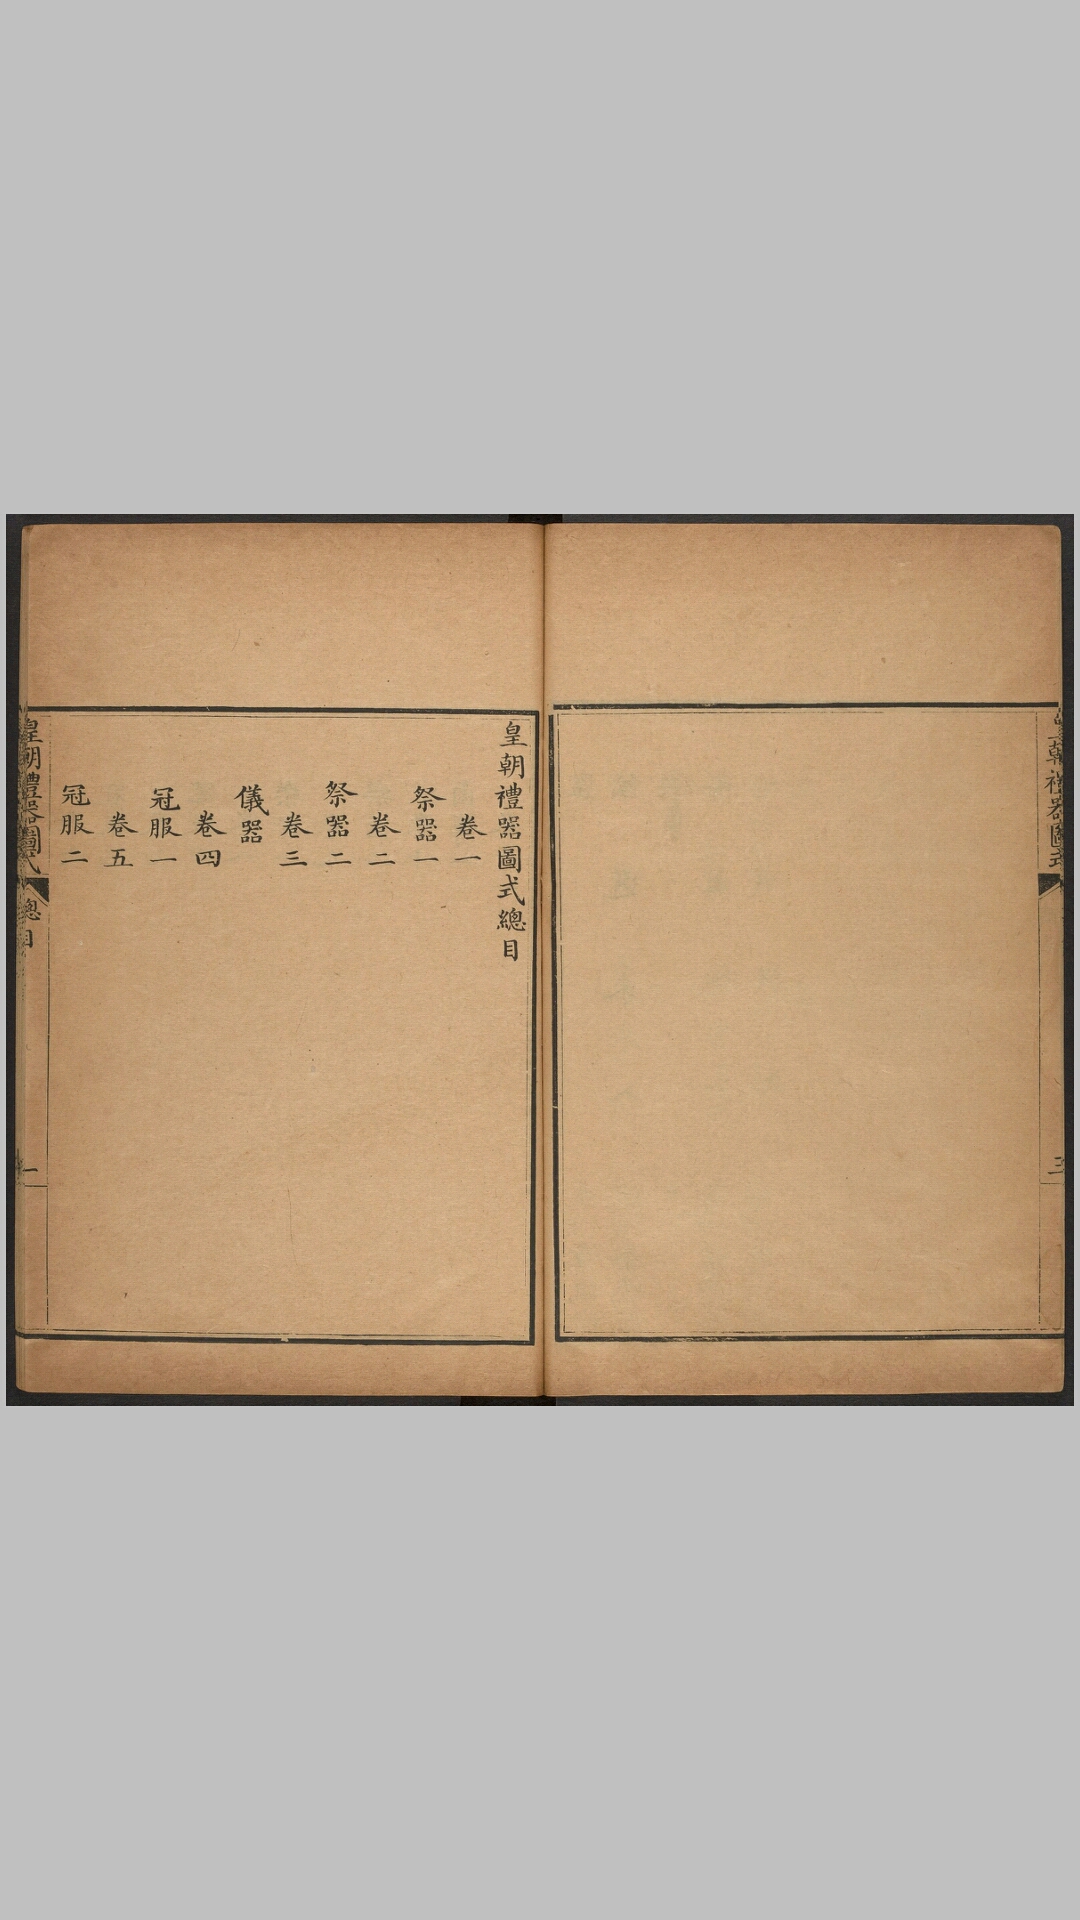 皇朝禮器圖式
三
皇朝禮器圖式總目
卷一
祭器一
卷二
祭器二
卷三
儀器
卷四
冠服一
卷五
冠服二
皇朝禮器圖式
總目
一